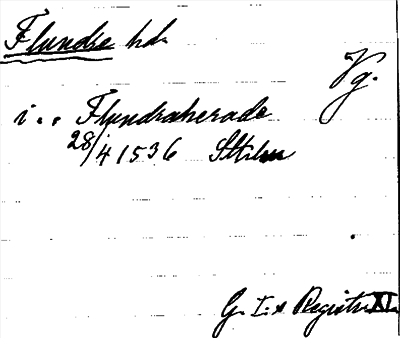 Flundre hd.
Vg.
i.. Flundraherade
28/4 1536 Sthlm
G. I:s Registr. XI.